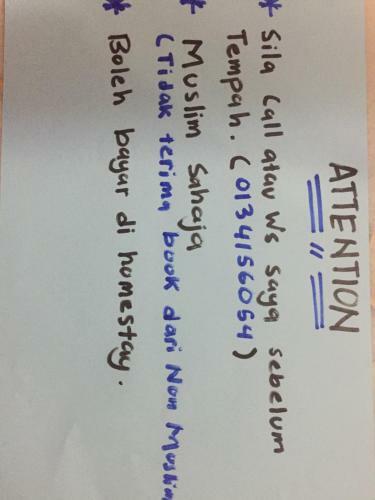 ATTENTION
"
* Sila Call atau Ws saya sebelum
Tempah. (0134156054)
* Muslim Sahaja
(Tidak terima book dari Non Muslim
* Boleh bayar di homestay.